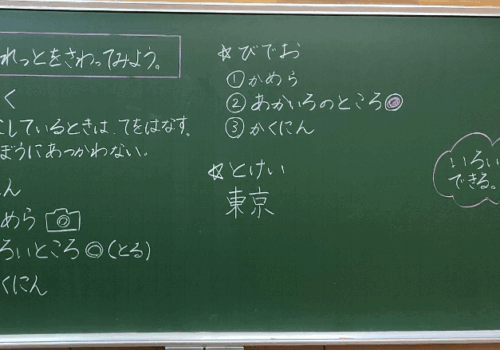 れっとをさわってみよう。
く
しているときは、てをはなす。
ぼうにあつかわない。
ん
めら
ろいところ◎(とる)
くにん
☆びでお
①かめら
②あかいろのところ◎
③かくにん
☆とけい
東京
いろい
できる。